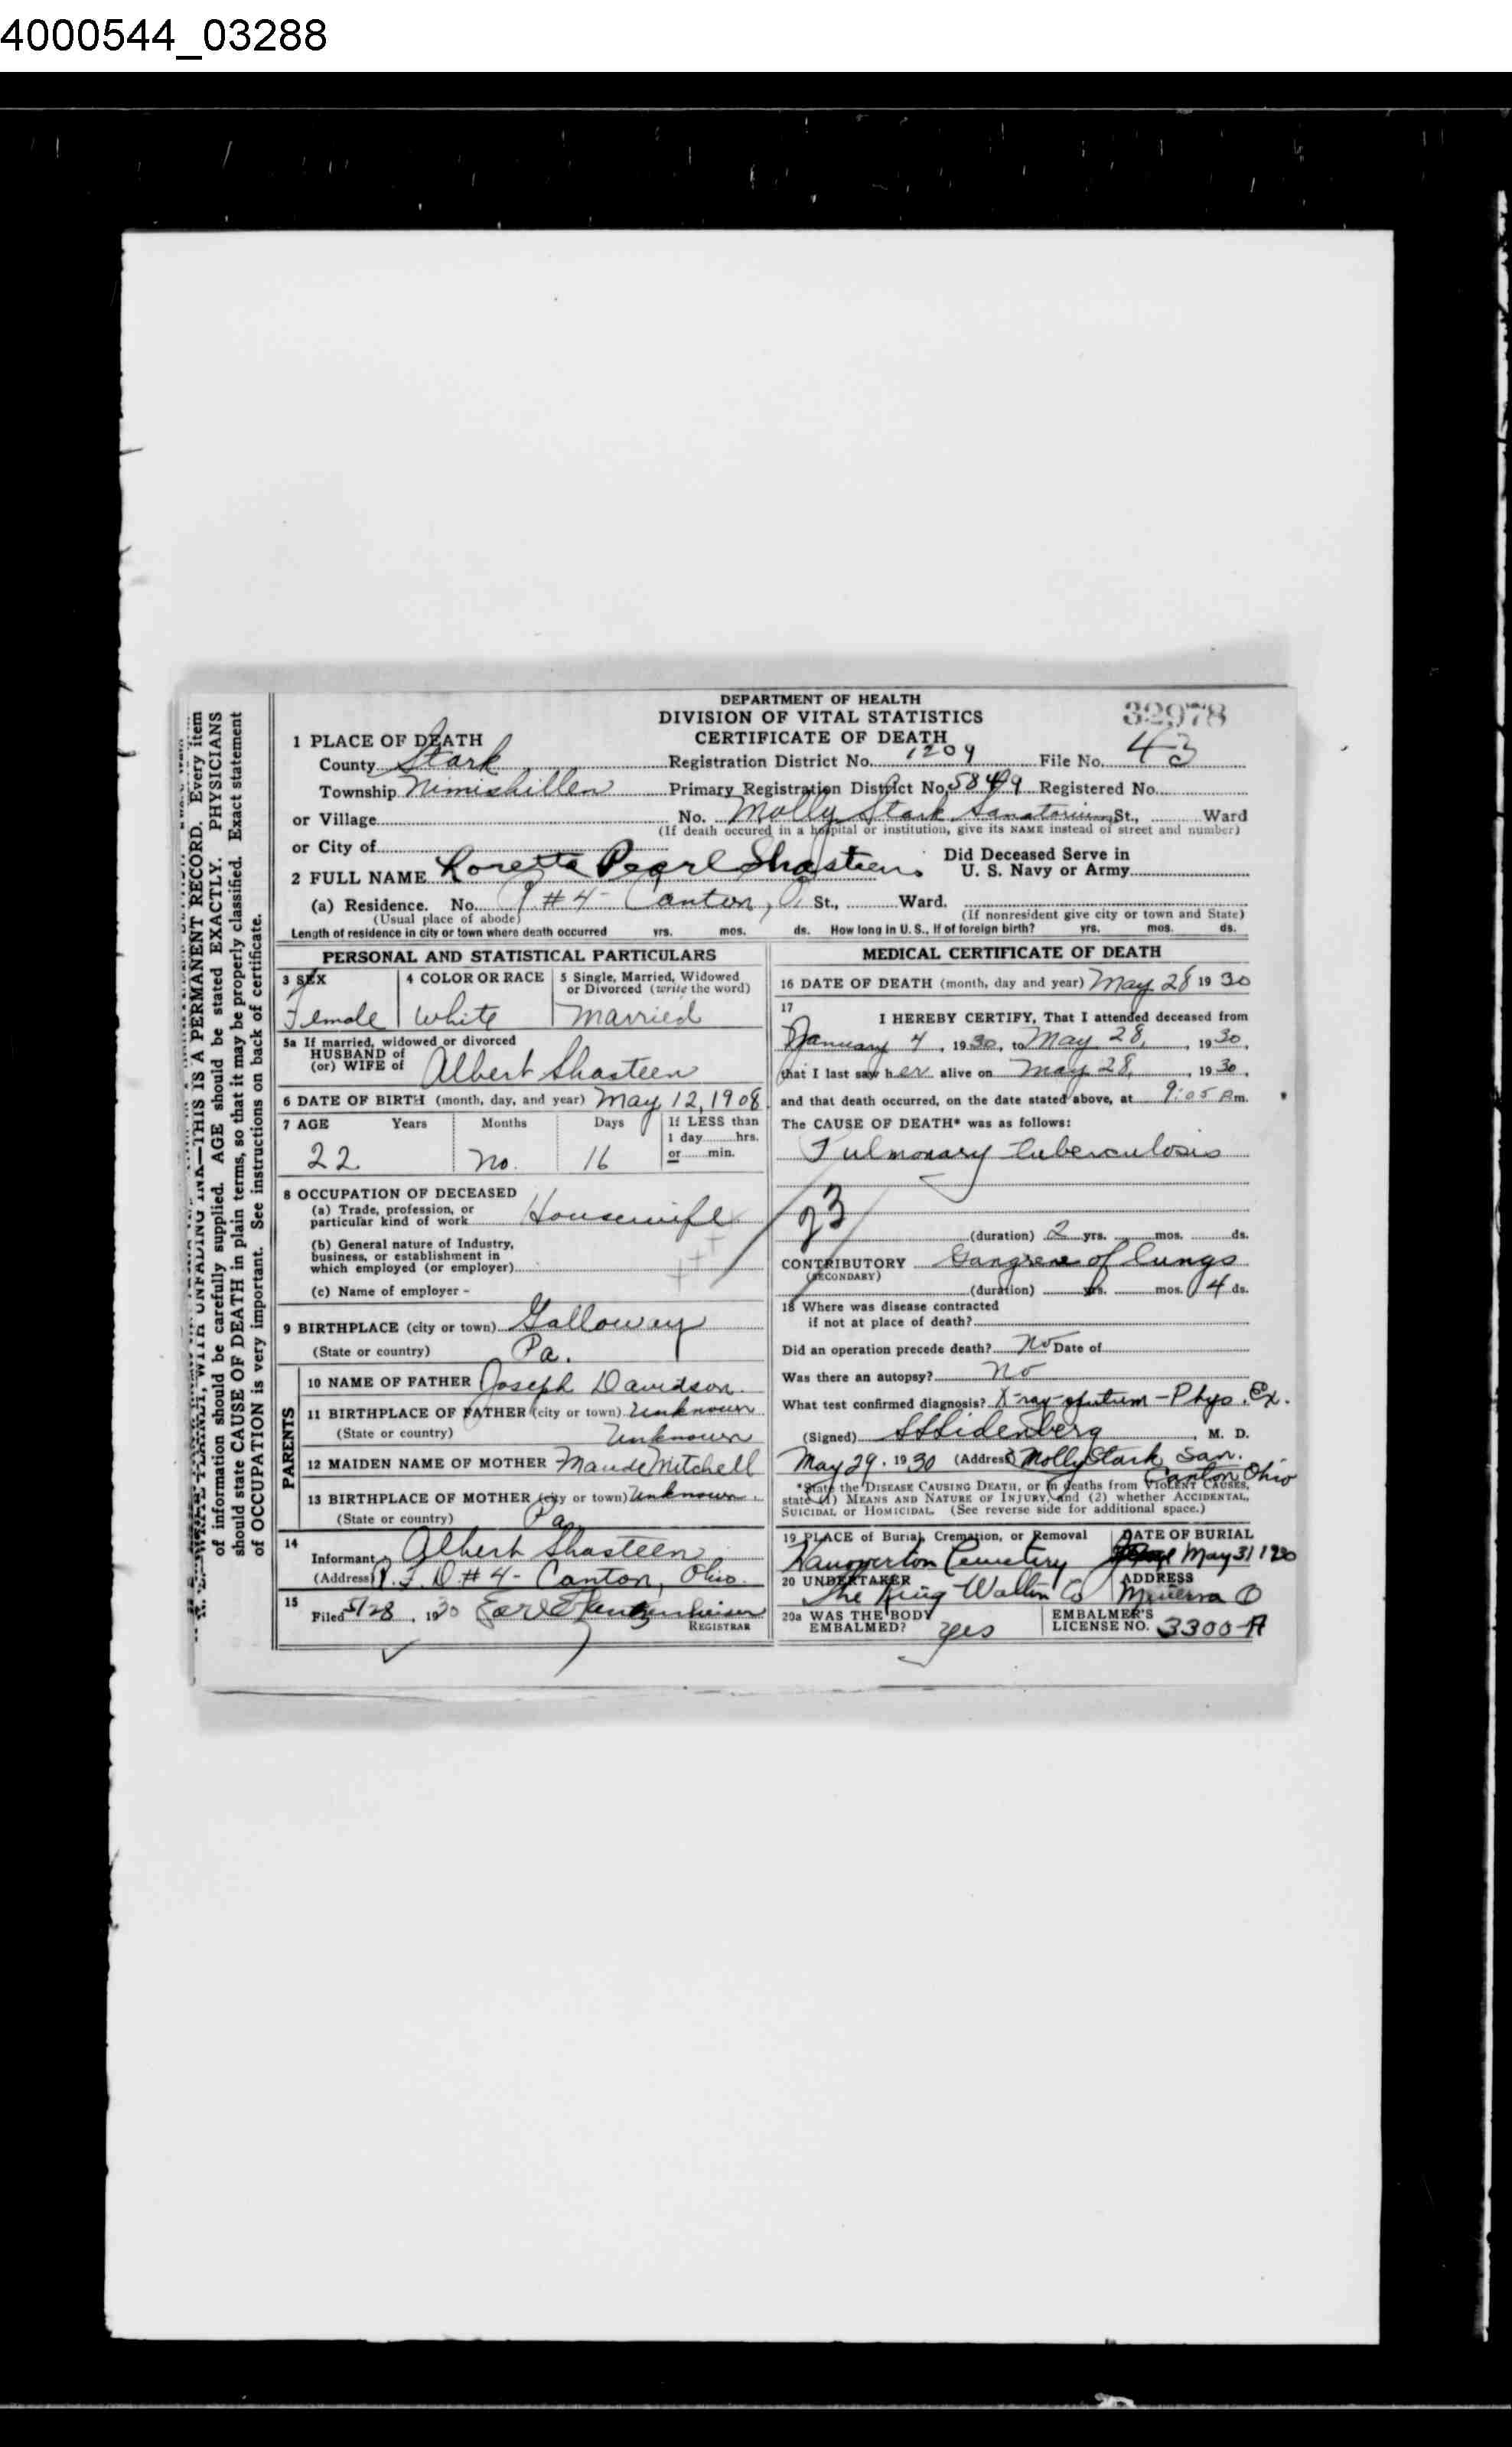 4000544_03288
DEPARTMENT OF HEALTH
DIVISION OF VITAL STATISTICS
CERTIFICATE OF DEATH
32978
1 PLACE OF DEATH
County Stark Registration District No. 1209 File No. 43
Township Nimishillen Primary Registration District No. 5849 Registered No.
or Village No. Molly Stark Sanatorium St., Ward
(If death occured in a hospital or institution, give its NAME instead of street and number)
or City of
2 FULL NAME Loretta Pearl Shasteen Did Deceased Serve in U. S. Navy or Army
(a) Residence. No. #4- Canton, O. St., Ward.
(Usual place of abode) (If nonresident give city or town and State)
Length of residence in city or town where death occurred yrs. mos. ds. How long in U. S., if of foreign birth? yrs. mos. ds.
PERSONAL AND STATISTICAL PARTICULARS
3 SEX 4 COLOR OR RACE 5 Single, Married, Widowed or Divorced (write the word)
Female White Married
5a If married, widowed or divorced
HUSBAND of
(or) WIFE of Albert Shasteen
6 DATE OF BIRTH (month, day, and year) May 12, 1908
7 AGE Years Months Days If LESS than 1 day hrs. or min.
22 no. 16
8 OCCUPATION OF DECEASED
(a) Trade, profession, or
particular kind of work Housewife
(b) General nature of Industry,
business, or establishment in
which employed (or employer)
(c) Name of employer -
9 BIRTHPLACE (city or town) Galloway
(State or country) Pa.
PARENTS
10 NAME OF FATHER Joseph Davidson
11 BIRTHPLACE OF FATHER (city or town) Unknown
(State or country) Unknown
12 MAIDEN NAME OF MOTHER Maude Mitchell
13 BIRTHPLACE OF MOTHER (city or town) Unknown.
(State or country) Pa
14
Informant Albert Shasteen
(Address) R.F.D. #4- Canton, Ohio.
15
Filed 5/28, 1930 Earl
REGISTRAR
MEDICAL CERTIFICATE OF DEATH
16 DATE OF DEATH (month, day and year) May 28 1930
17
I HEREBY CERTIFY, That I attended deceased from
January 4, 1930, to May 28, 1930,
that I last saw her alive on May 28, 1930,
and that death occurred, on the date stated above, at 9:05 m.
The CAUSE OF DEATH* was as follows:
Pulmonary tuberculosis
23
(duration) 2 yrs. mos. ds.
CONTRIBUTORY Gangrene of lungs
(SECONDARY)
(duration) yrs. mos. 4 ds.
18 Where was disease contracted
if not at place of death?
Did an operation precede death? No Date of
Was there an autopsy? no
What test confirmed diagnosis? X-ray-sputum-Phys. Ex.
(Signed) SSSidenberg, M. D.
May 29, 1930 (Address) Molly Stark San.
Canton Ohio
*State the DISEASE CAUSING DEATH, or in deaths from VIOLENT CAUSES,
state (1) MEANS AND NATURE OF INJURY, and (2) whether ACCIDENTAL,
SUICIDAL or HOMICIDAL. (See reverse side for additional space.)
19 PLACE of Burial, Cremation, or Removal DATE OF BURIAL
Hanoverton Cemetery May 31 1930
20 UNDERTAKER ADDRESS
The King Waltin Co Minerva O
20a WAS THE BODY EMBALMED? yes EMBALMER'S LICENSE NO. 3300-A
THIS IS A PERMANENT RECORD. Every item
of information should be carefully supplied. AGE should be stated EXACTLY. PHYSICIANS
should state CAUSE OF DEATH in plain terms, so that it may be properly classified. Exact statement
of OCCUPATION is very important. See instructions on back of certificate.